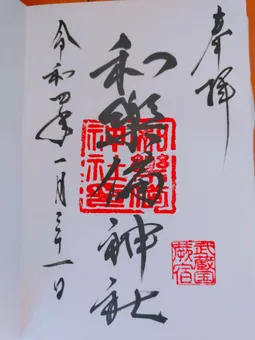 奉拝
和樂備神社
令和四年一月三十一日
武蔵国
蕨宿